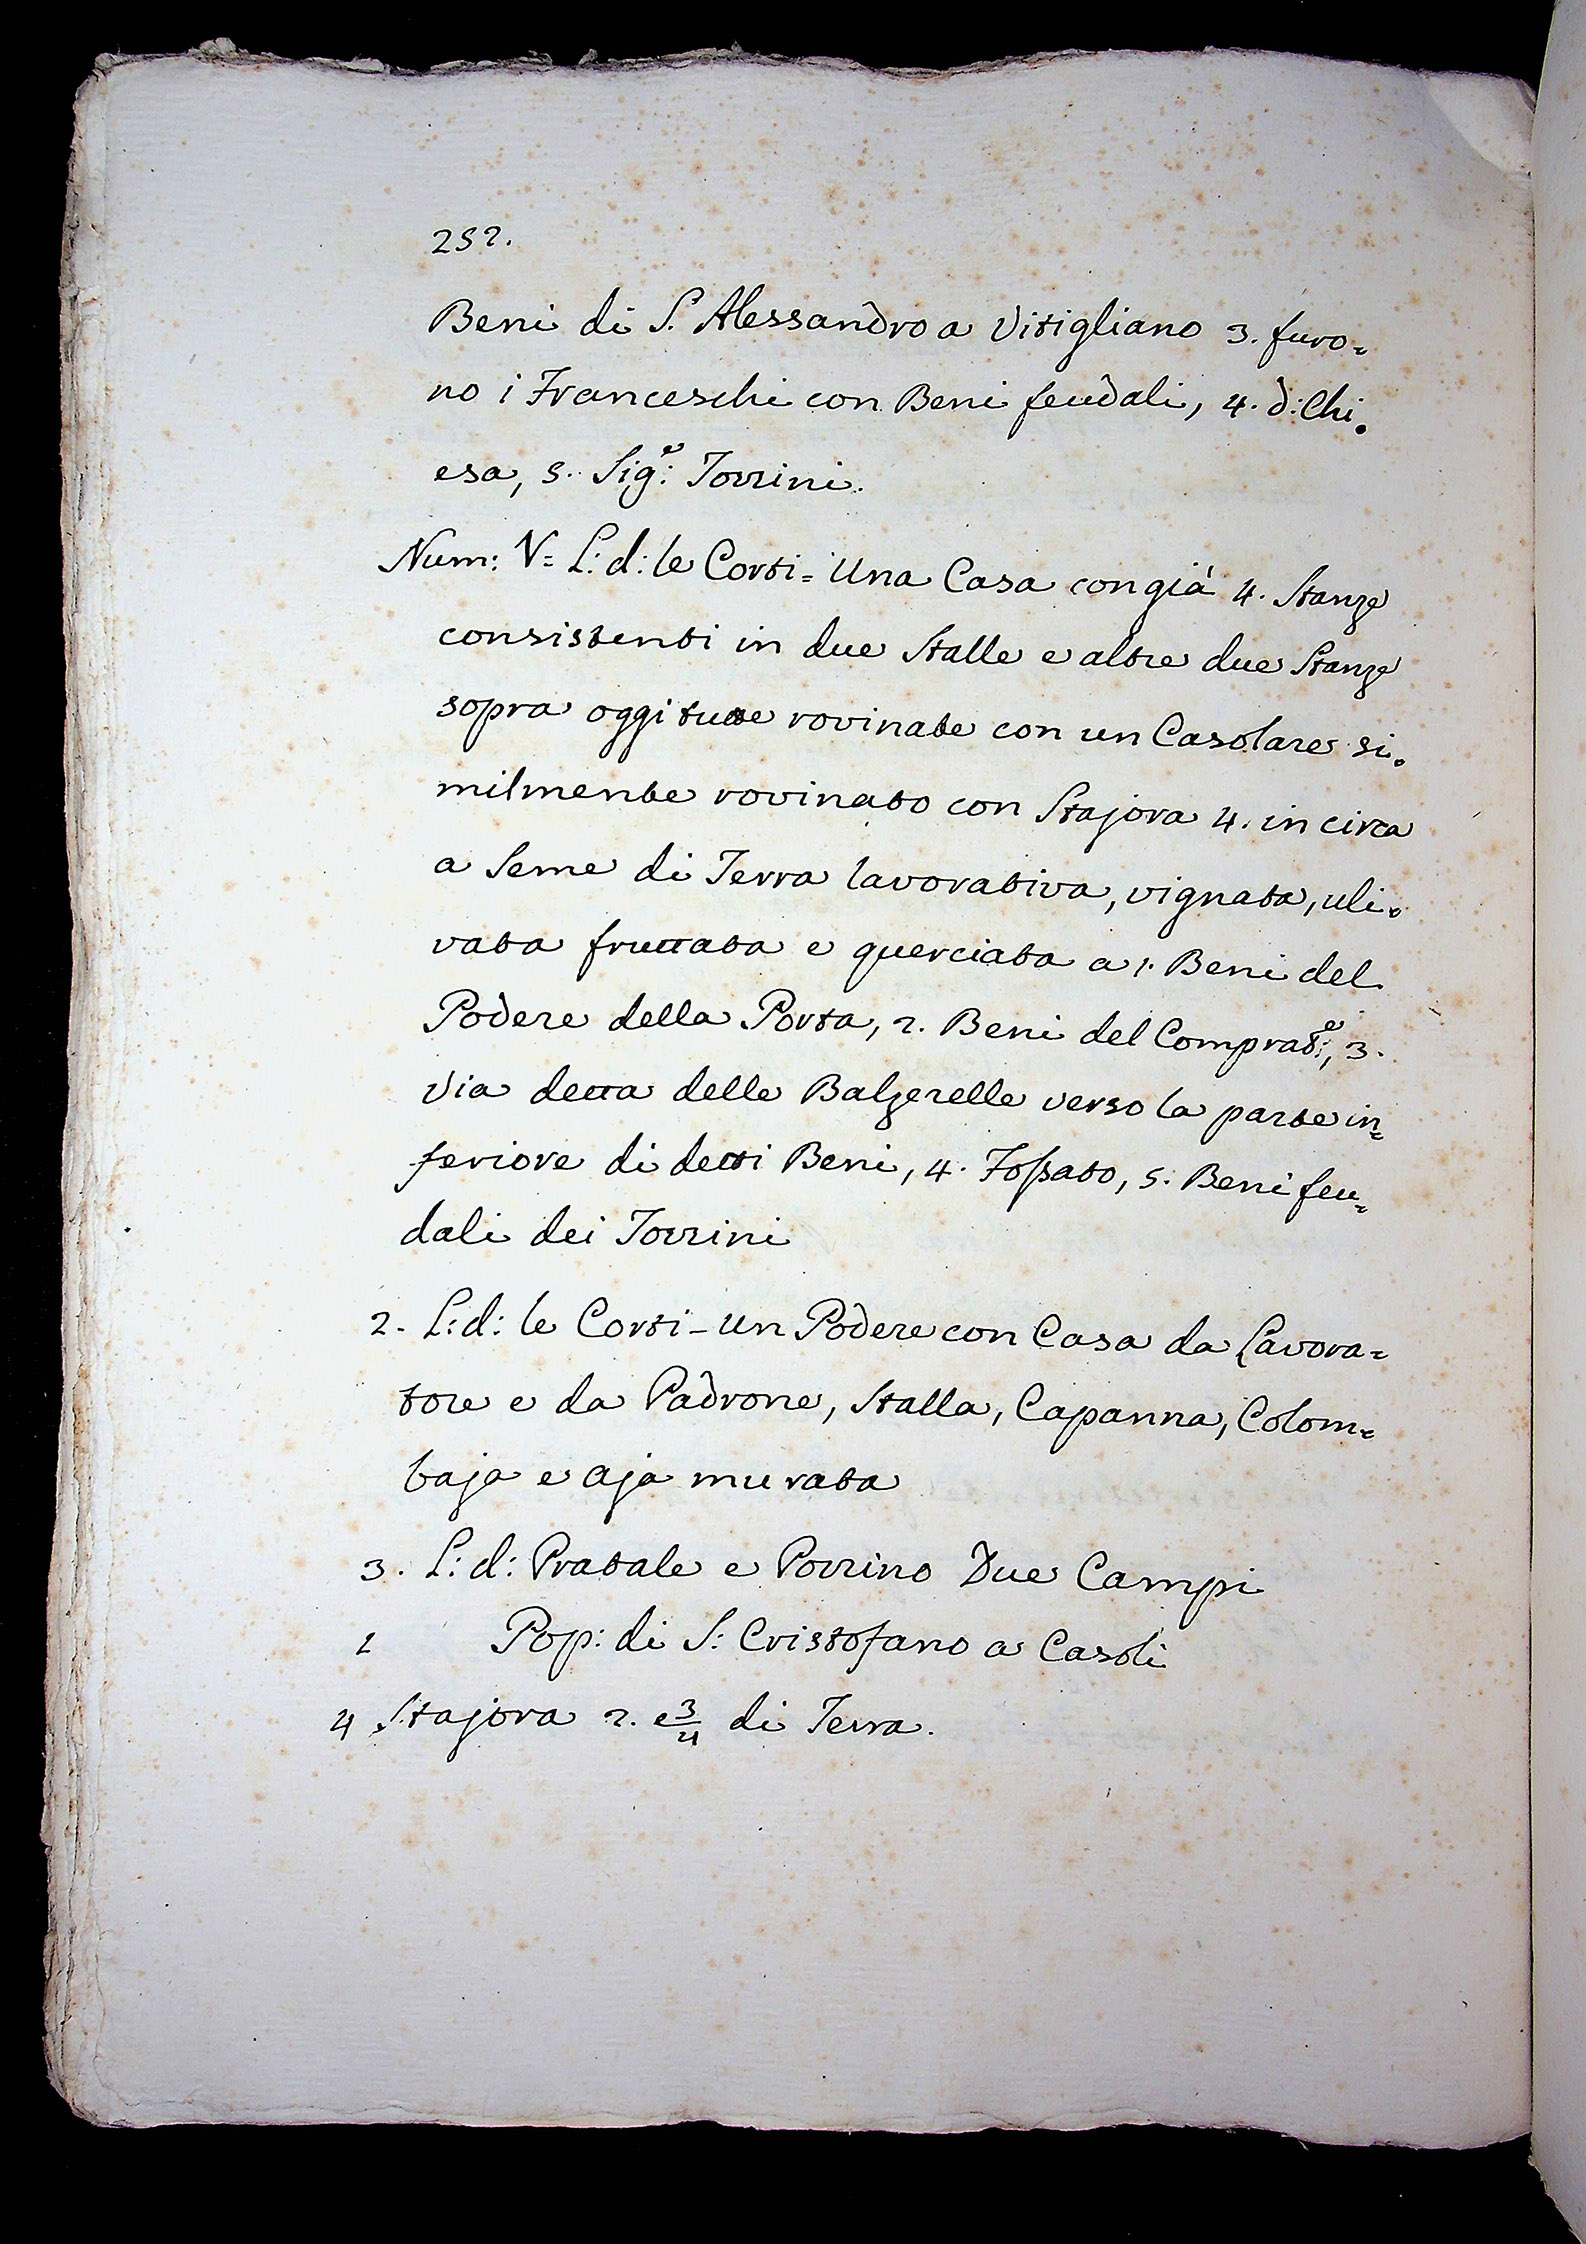 252.
Beni di S. Alessandro a Vitigliano 3. furo=
no i Franceschi con Beni feudali, 4. d: Chi.
esa, 5. Sig.e: Torrini.
Num: V= L: d: le Corti= Una Casa con già 4. Stanze
consistenti in due Stalle e altre due Stanze
sopra oggi tutte rovinate con un Casolare si.
milmente rovinato con Stajora 4. in circa
a Seme di Terra lavorativa, vignata, uli.
vata fruttata e querciata a 1. Beni del
Podere della Porta, 2. Beni del Comprat.e:, 3.
Via detta delle Balzerelle verso la parte in=
feriore di detti Beni, 4. Fossato, 5. Beni feu=
dali dei Torrini
2. L: d: le Corti - Un Podere con Casa da Lavora=
tore e da Padrone, Stalla, Capanna, Colom=
baja e aja murata
3. L: d: Pratale e Porrino Due Campi
1 Pop: di S: Cristofano a Casoli
4 Stajora 2. e 3/4 di Terra.